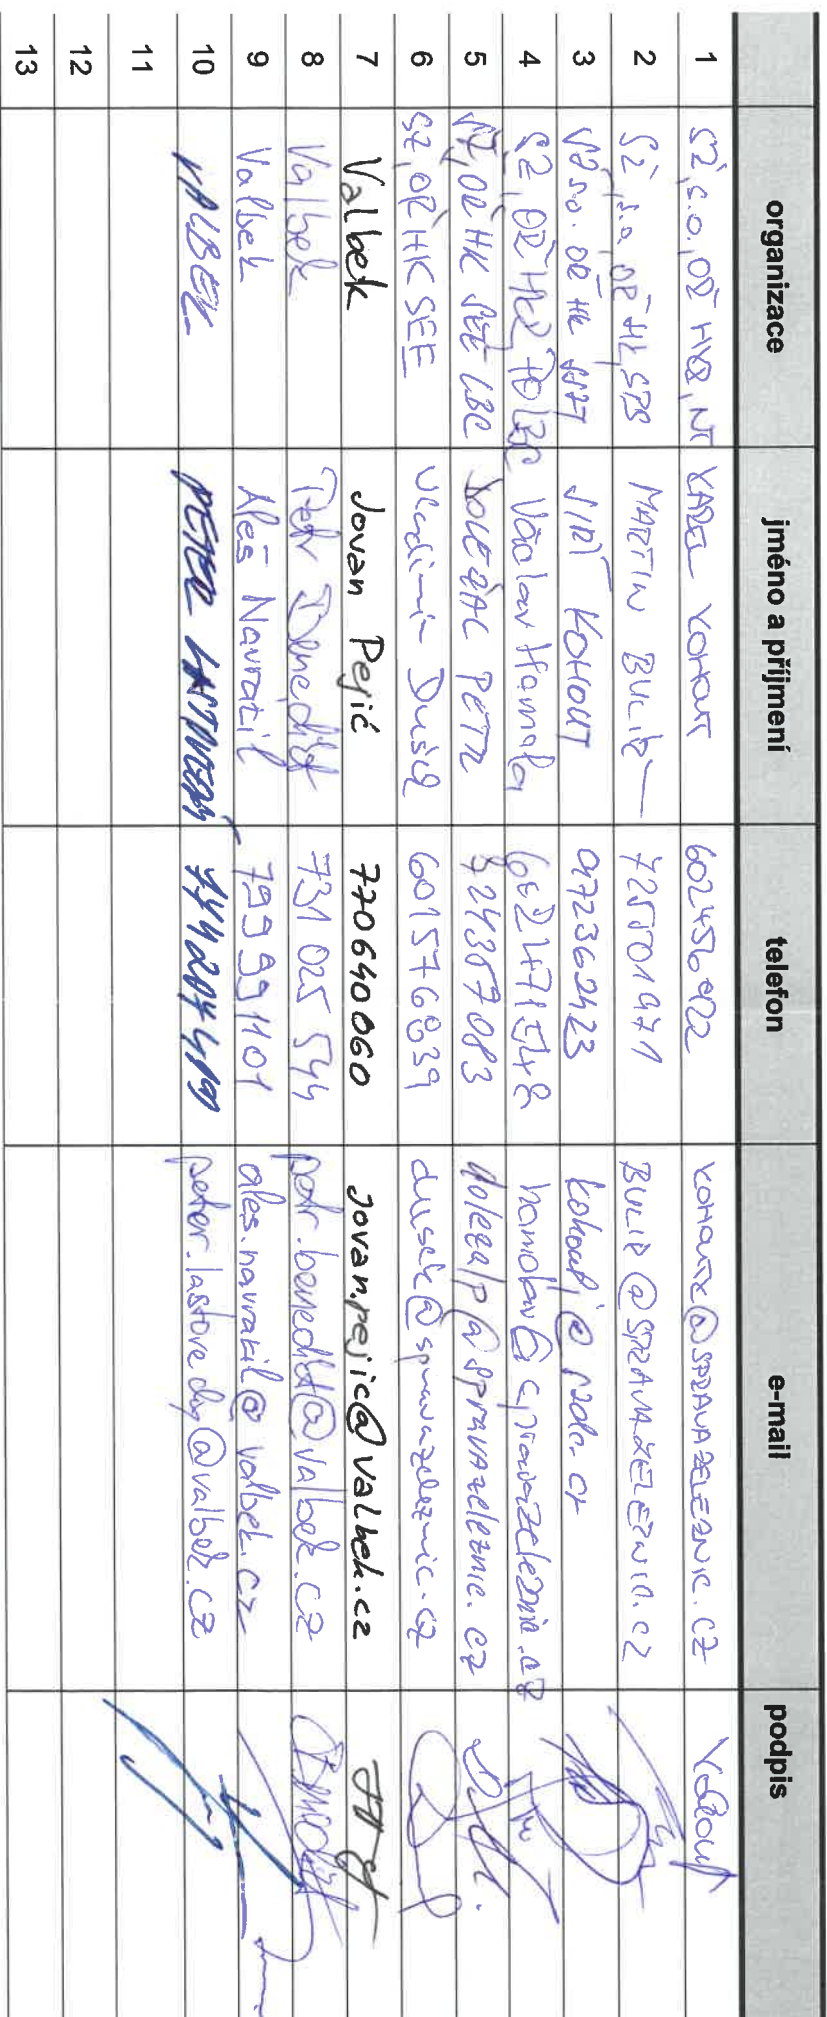 organizace jméno a příjmení telefon e-mail podpis
1 SŽ, s.o., OŘ HKR, NT KAREL KOHOUT 602456922 KOHOUTK@SPRAVAZELEZNIC.CZ Kohout
2 SŽ, s.o., OŘ HK, SPS MARTIN BULIR 725501971 BULIR@SPRAVAZELEZNIC.CZ
3 SŽ s.o. OŘ HK SSZT JIŘÍ KOHOUT 972362423 kohoutj@szdc.cz
4 SŽ, OŘ HK, TO LBC Václav Hamola 602471548 hamolav@spravazeleznic.cz
5 SŽ, OŘ HK SEE LBC DOLEŽAL PETR 724387083 dolezalp@spravazeleznic.cz
6 SŽ, OŘ HK SEE Vladimír Dušek 601576839 dusek@spravazeleznic.cz
7 Valbek Jovan Pejić 770640060 jovan.pejic@valbek.cz
8 Valbek Petr Benedikt 731 025 544 petr.benedikt@valbek.cz
9 Valbek Aleš Navrátil 799991101 ales.navratil@valbek.cz
10 VALBEK PETER LASTOVECKÝ peter.lastovecky@valbek.cz
11
12
13